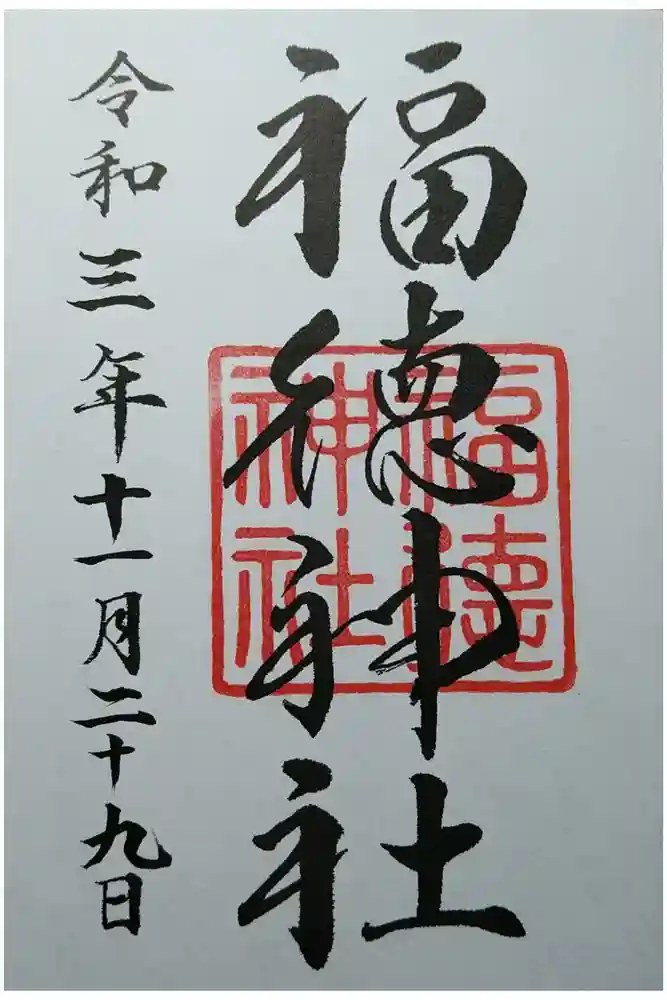 福徳神社
福徳神社
令和三年十一月二十九日